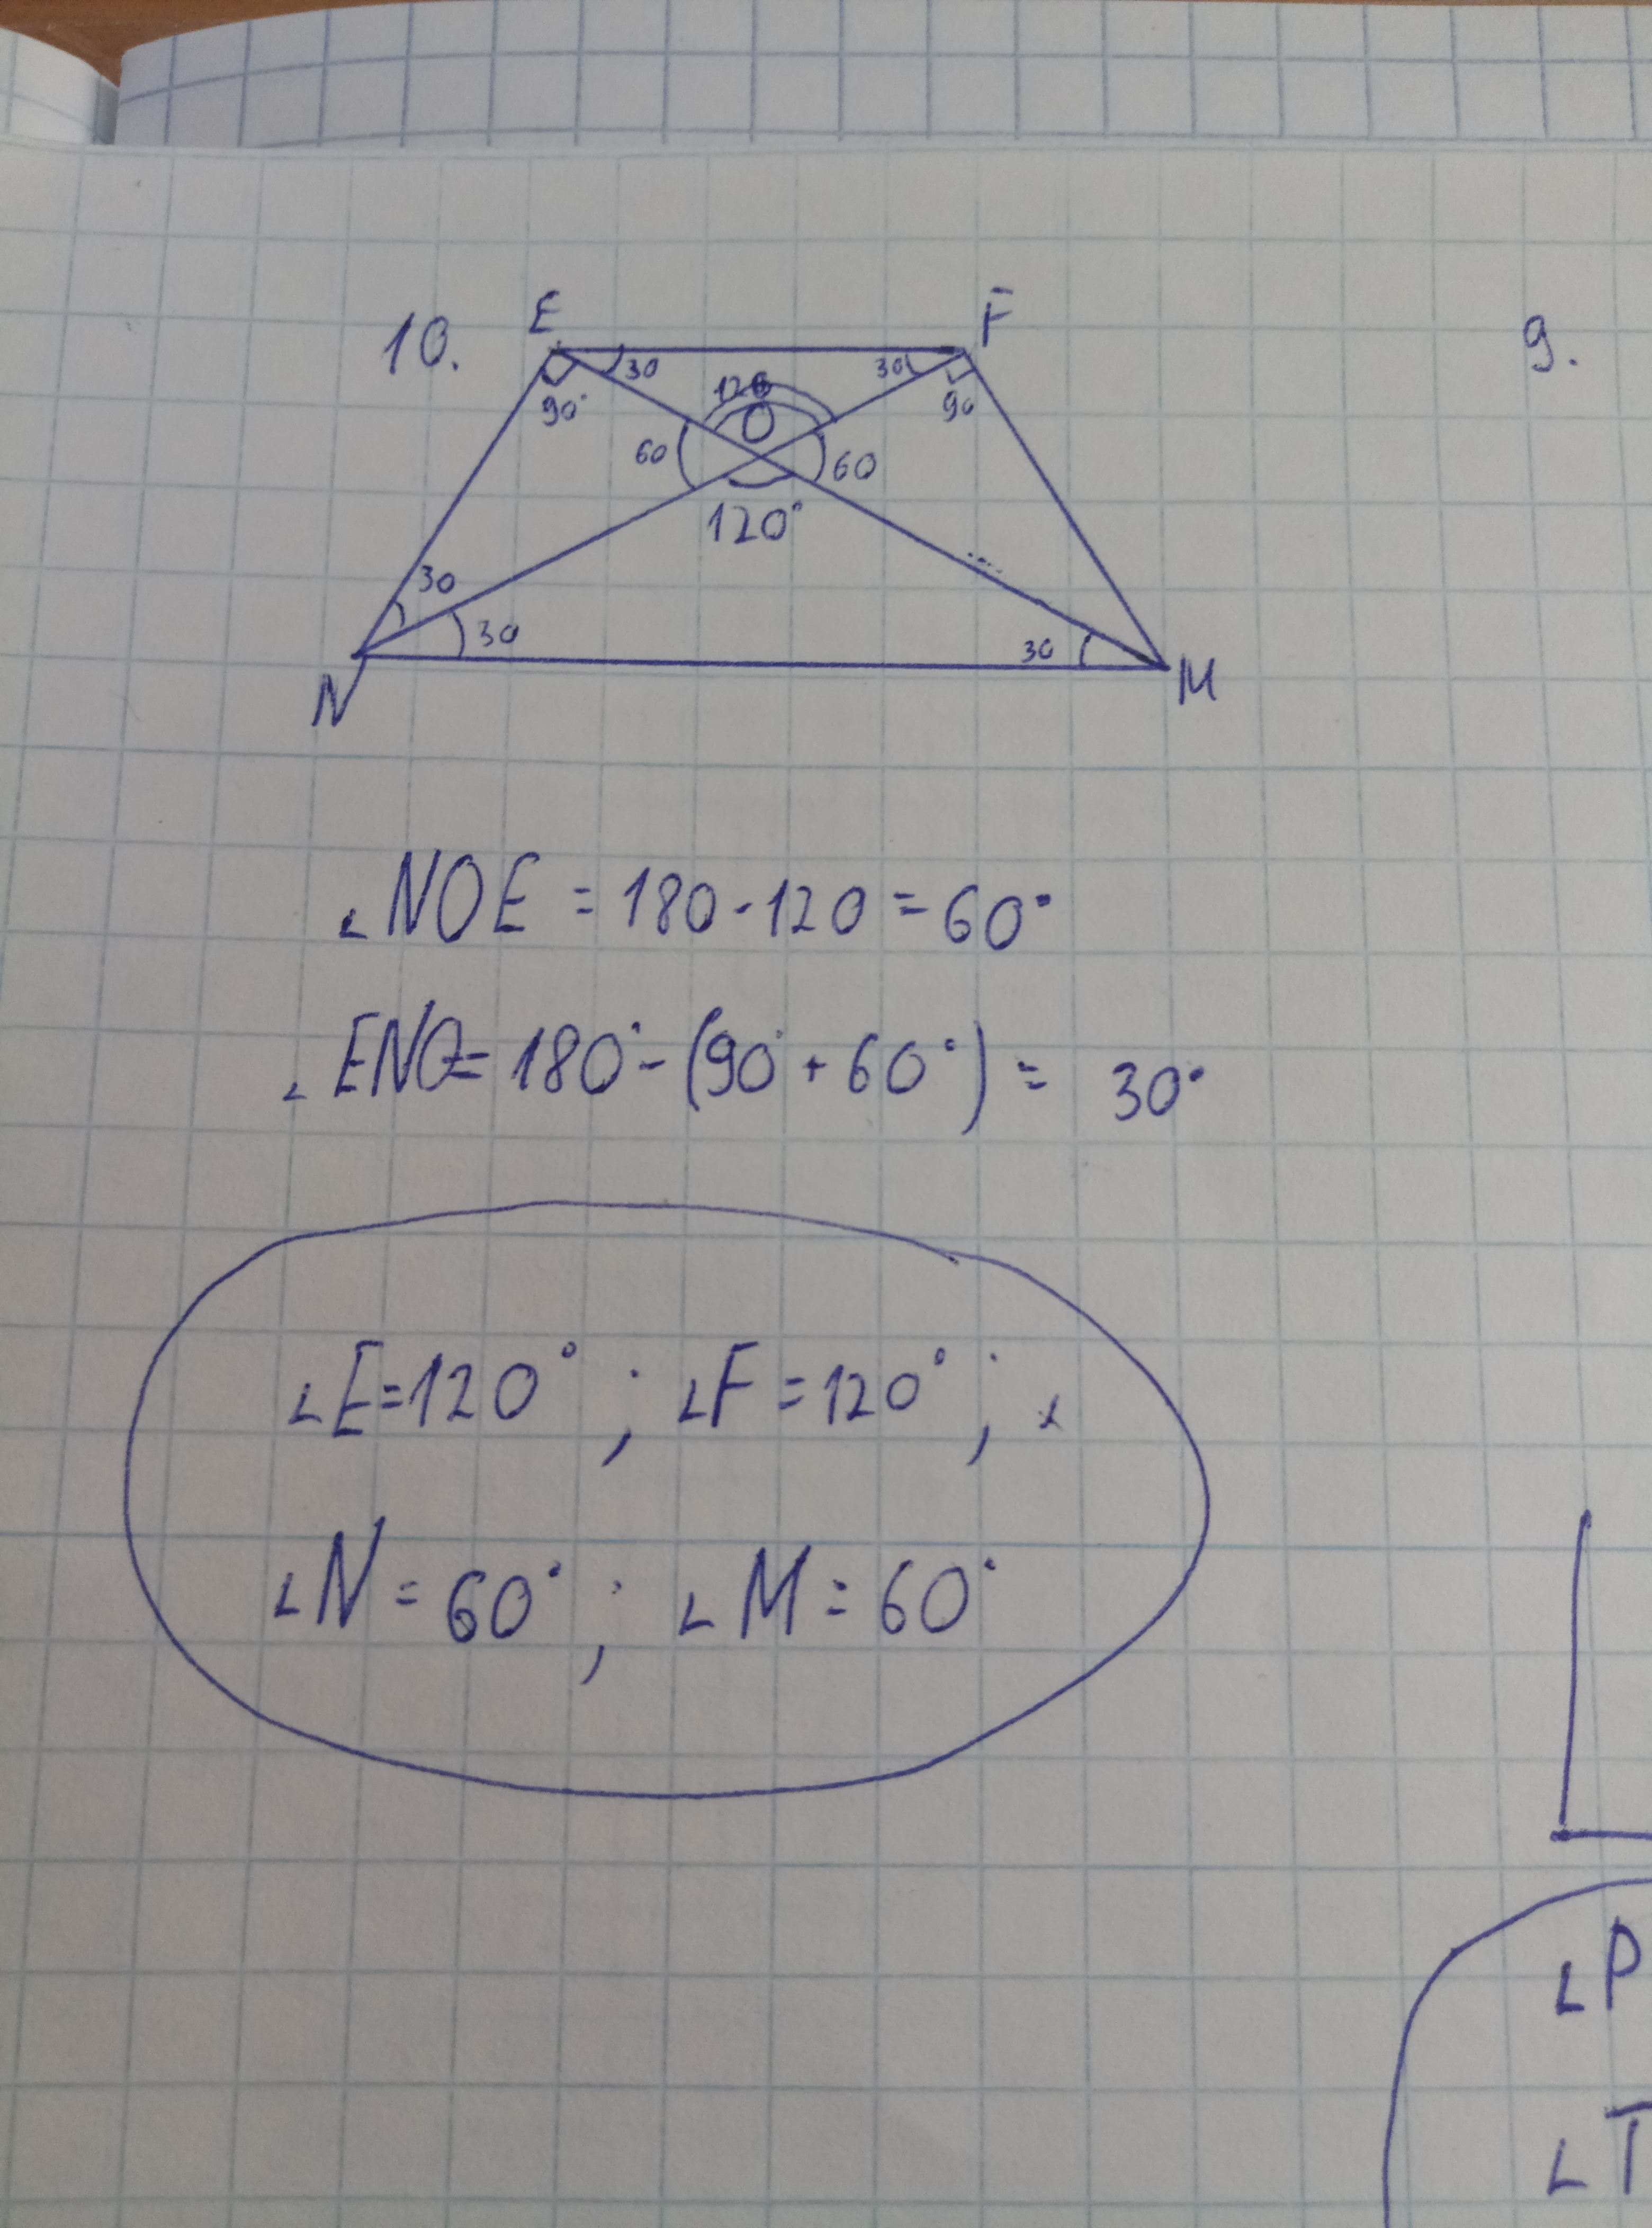 10. E F 9.
30 30
120
90° O 90
60 60
120°
30
30 30
N M
∠NOE = 180-120 = 60°
∠ENO = 180° - (90° + 60°) = 30°
∠E=120° ; ∠F = 120° ; ∠
∠N = 60° ; ∠M = 60°
∠P
∠T